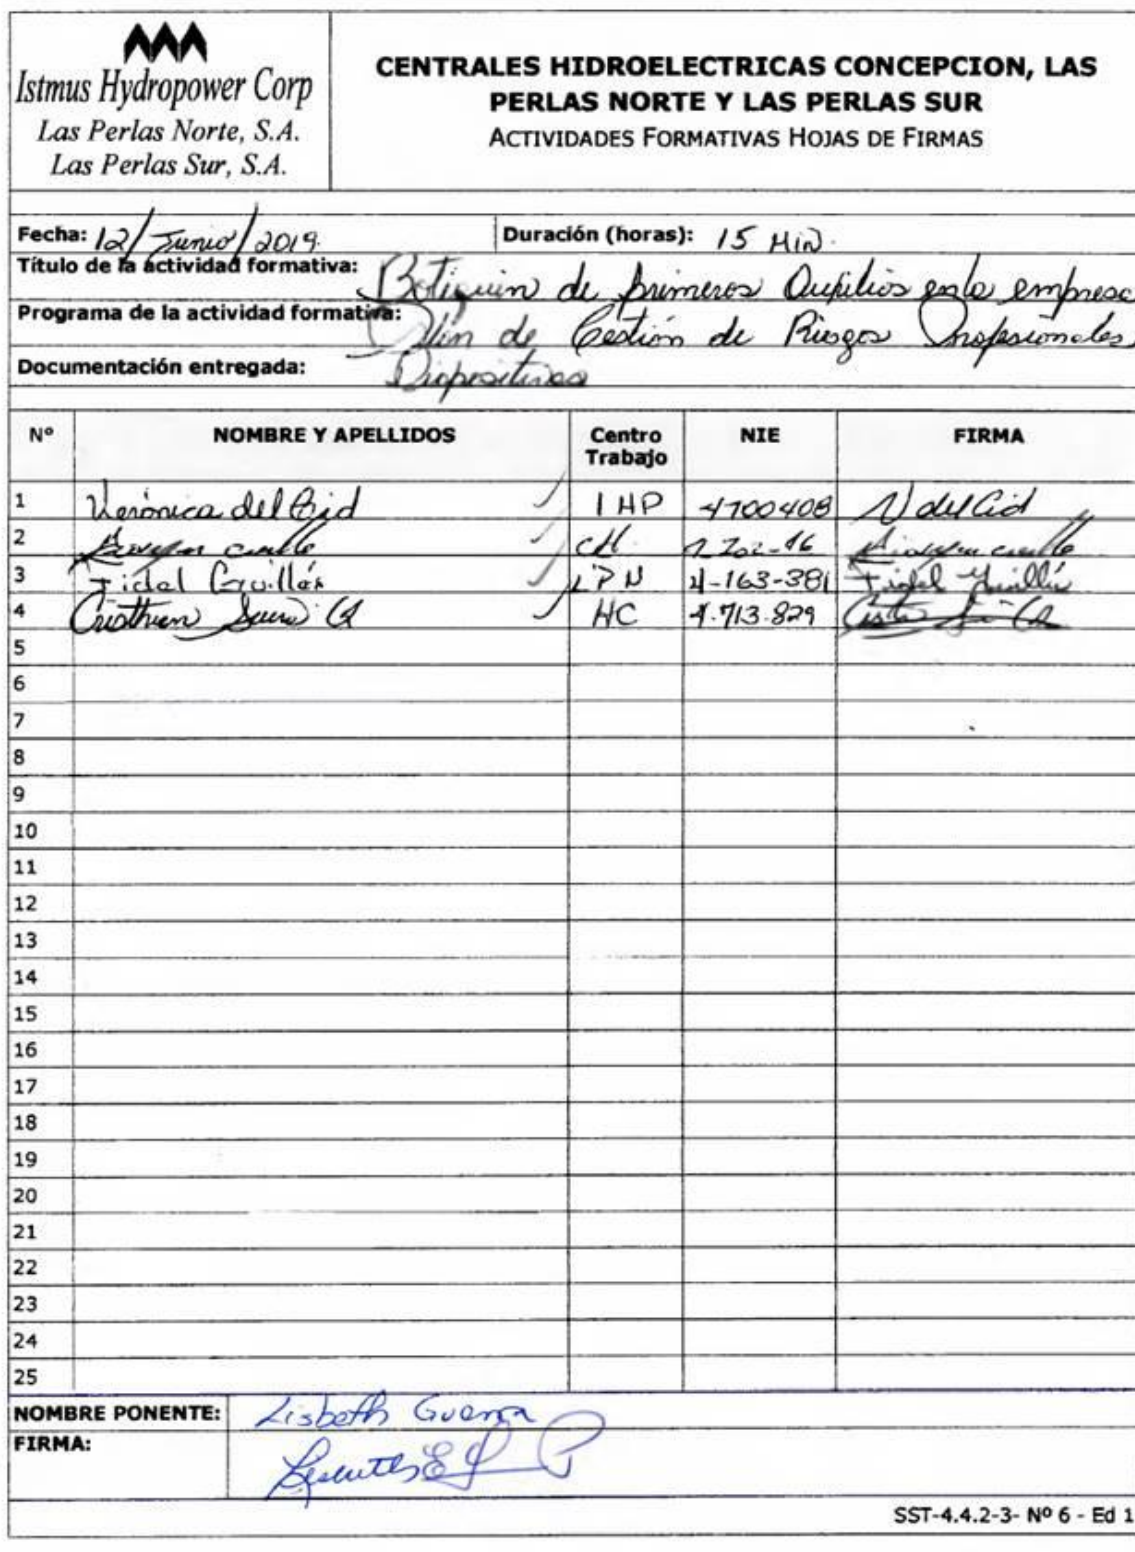 Istmus Hydropower Corp
Las Perlas Norte, S.A.
Las Perlas Sur, S.A.
CENTRALES HIDROELECTRICAS CONCEPCION, LAS
PERLAS NORTE Y LAS PERLAS SUR
ACTIVIDADES FORMATIVAS HOJAS DE FIRMAS
Fecha: 12/Junio/2019. Duración (horas): 15 Min.
Título de la actividad formativa: Botiquin de primeros Auxilios en la empresa
Programa de la actividad formativa: Plan de Gestión de Riesgos Profesionales
Documentación entregada: Diapositivas
Nº NOMBRE Y APELLIDOS Centro Trabajo NIE FIRMA
1 Verónica del Cid IHP 4700408 V del Cid
2 CH 16
3 Fidel Guillén LPN 4-163-381 Fidel Guillén
4 Cristhian HC 4-713-829
5
6
7
8
9
10
11
12
13
14
15
16
17
18
19
20
21
22
23
24
25
NOMBRE PONENTE: Lisbeth Guerra
FIRMA:
SST-4.4.2-3- Nº 6 - Ed 1